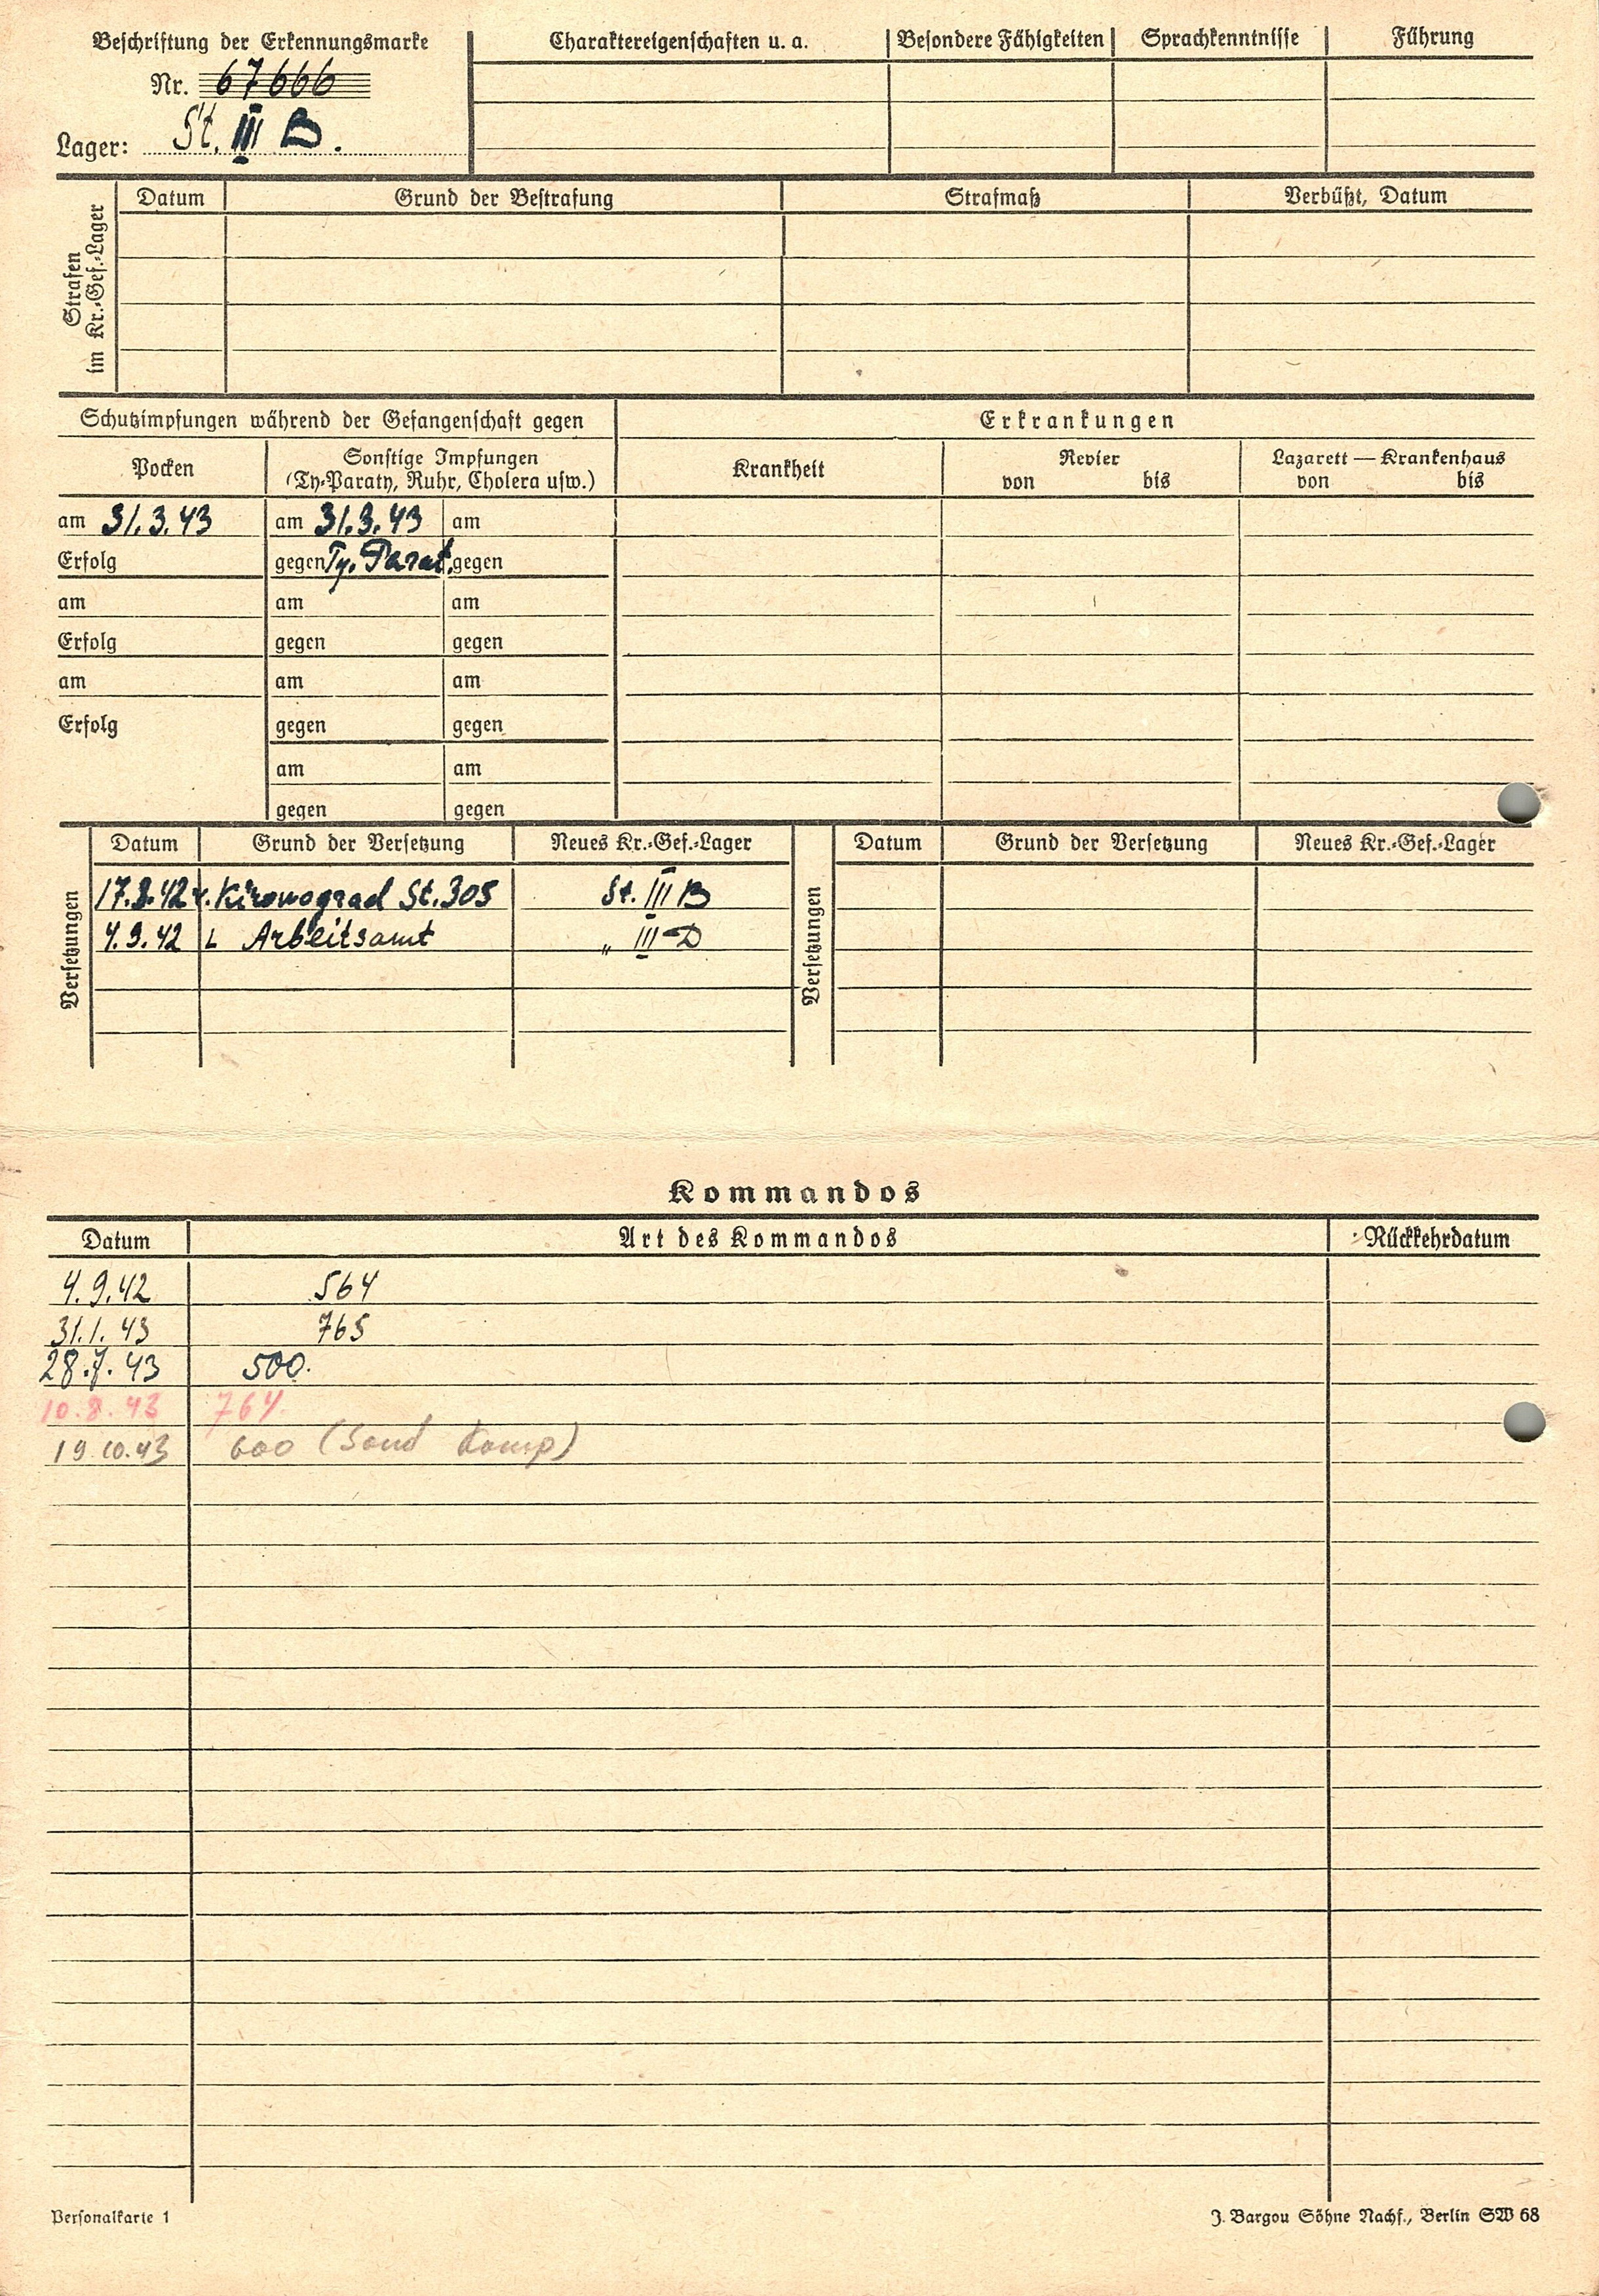 Beschriftung der Erkennungsmarke
Nr. 67666
Lager: St. III B.
Charaktereigenschaften u. a. Besondere Fähigkeiten Sprachkenntnisse Führung
Strafen
im Kr.-Gef.-Lager
Datum Grund der Bestrafung Strafmaß Verbüßt, Datum
Schutzimpfungen während der Gefangenschaft gegen
Erkrankungen
Pocken
Sonstige Impfungen
(Ty-Paraty, Ruhr, Cholera usw.)
Krankheit
Revier
von bis
Lazarett — Krankenhaus
von bis
am 31.3.43 am 31.3.43 am
Erfolg gegen Ty. Parat. gegen
am am am
Erfolg gegen gegen
am am am
Erfolg gegen gegen
am am
gegen gegen
Versetzungen
Datum Grund der Versetzung Neues Kr.-Gef.-Lager
17.8.42 v. Kirowograd St. 305 St. III B
4.9.42 Arbeitsamt „ III D
Versetzungen
Datum Grund der Versetzung Neues Kr.-Gef.-Lager
Kommandos
Datum Art des Kommandos Rückkehrdatum
4.9.42 564
31.1.43 765
28.7.43 500.
10.8.43 764.
19.10.43 600 (Sond Komp)
Personalkarte 1
J. Bargou Söhne Nachf., Berlin SW 68